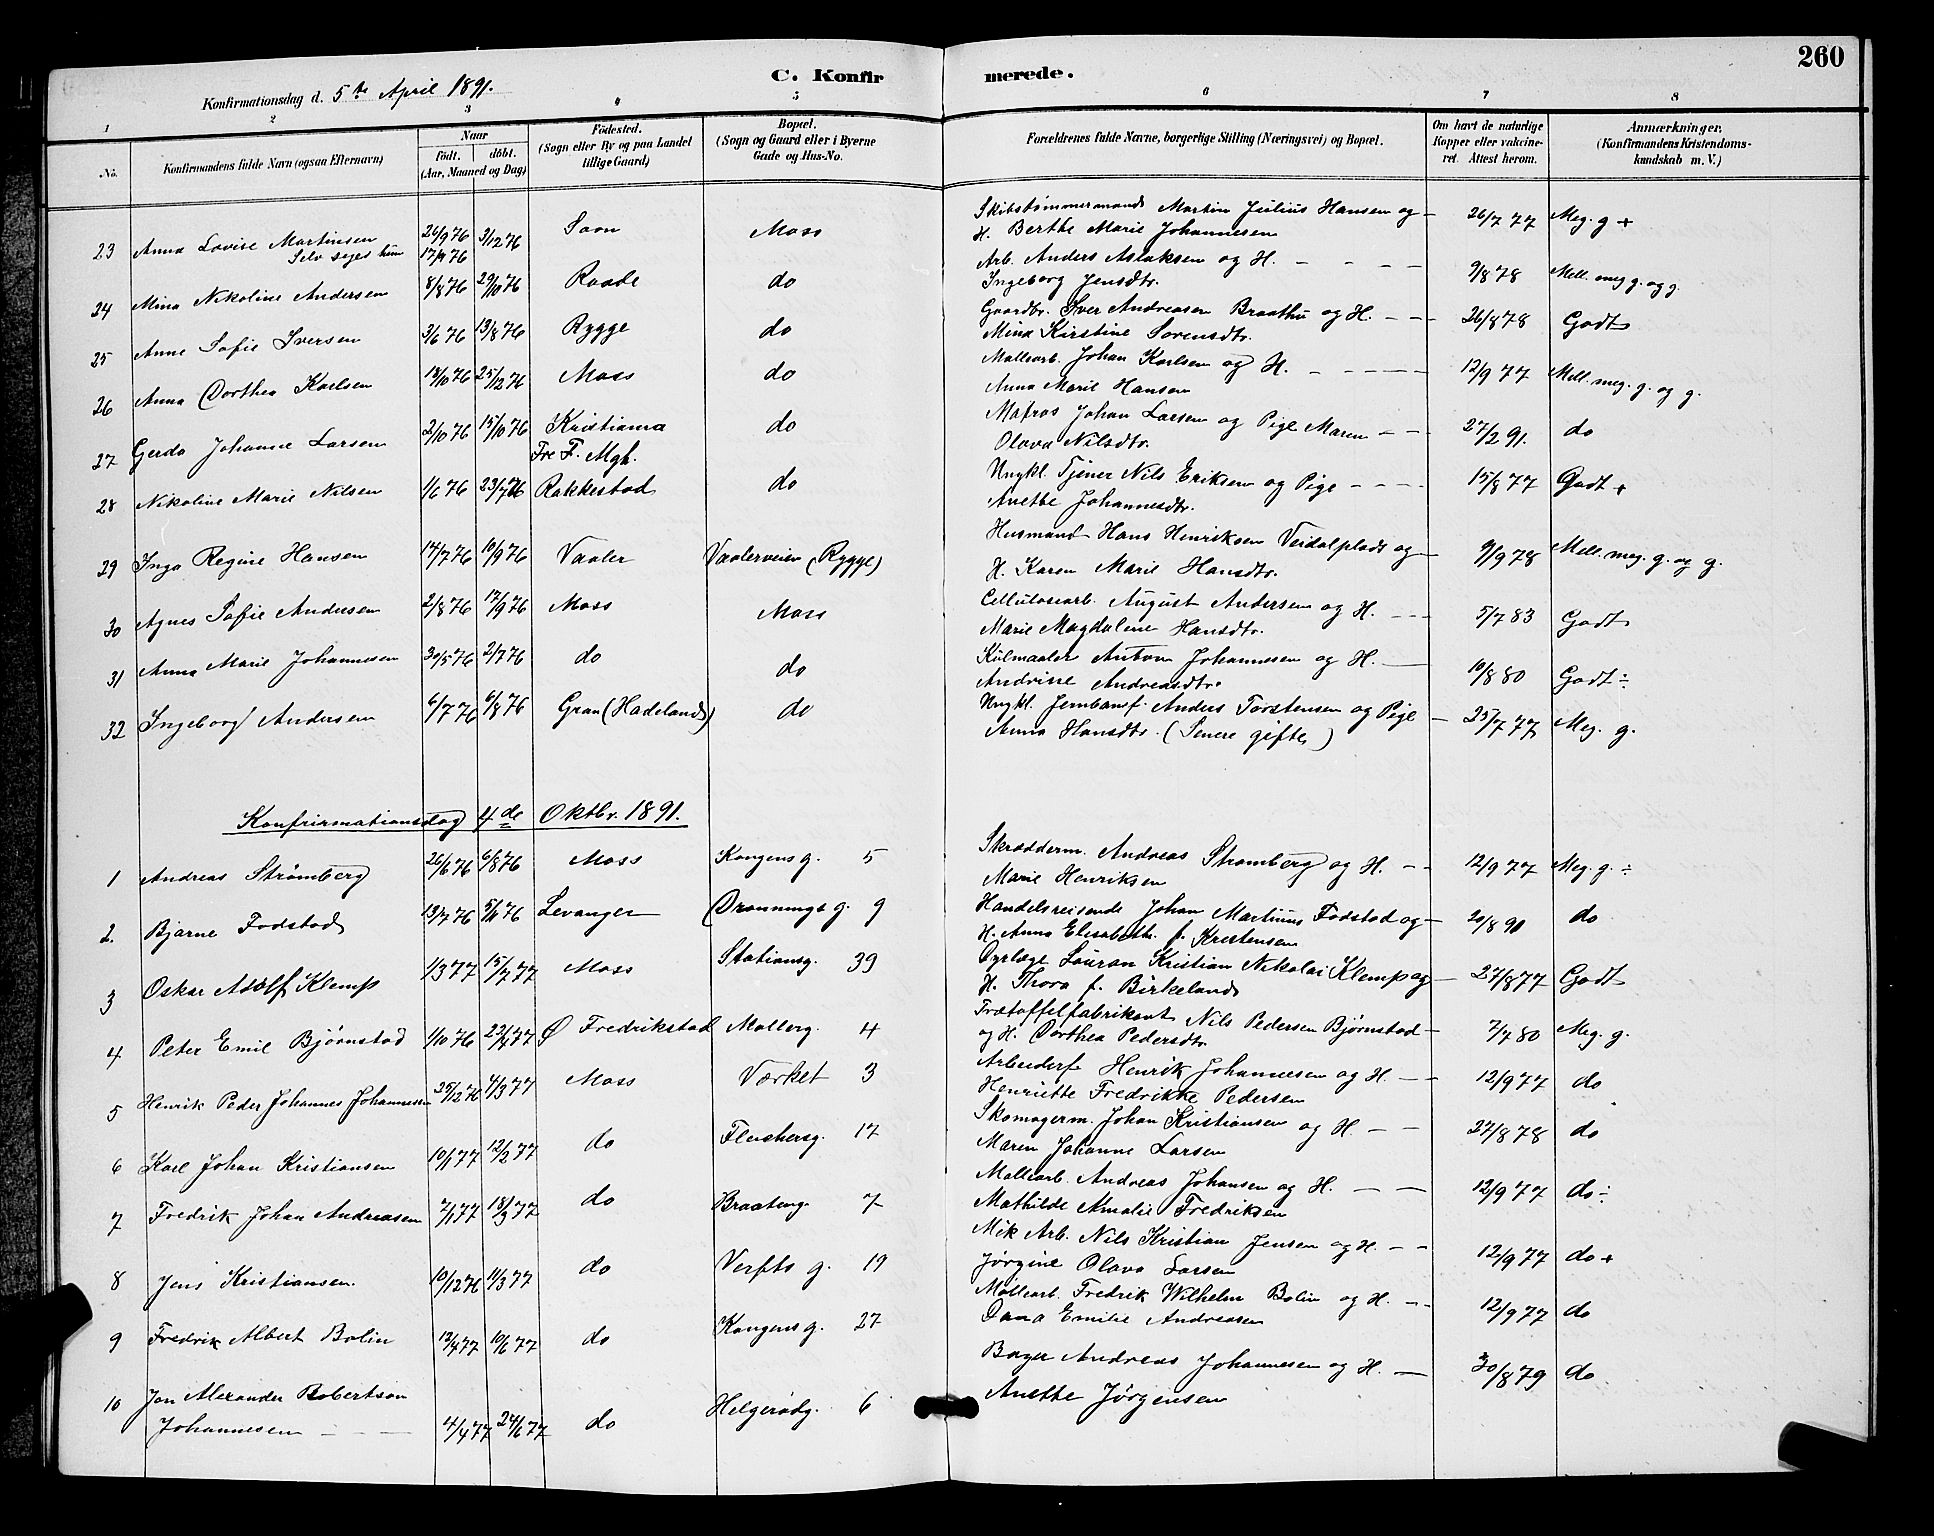 260
C. Konfirmerede.
Konfirmationsdag d. 5te April 1891.
1 2 3 4 5 6 7 8
No.
Konfirmandens fulde Navn (ogsaa Efternavn)
Naar
født. døbt.
(Aar, Maaned og Dag)
Fødested.
(Sogn eller By og paa Landet
tillige Gaard)
Bopæl.
(Sogn og Gaard eller i Byerne
Gade og Hus-No.
Forældrenes fulde Navne, borgerlige Stilling (Næringsvei) og Bopæl.
Om havt de naturlige
Kopper eller vakcine-
ret. Attest herom.
Anmærkninger.
(Konfirmandens Kristendoms-
kundskab m. V.)
23 Anna Lovise Martinsen 24/9 76 3/12 76 Soon Moss Skibstømmermand Martin Julius Hansen og 26/7 77 Meg. g +
Selv siges hun 17/9 76 H. Berthe Marie Johannesen
24 Mina Nikoline Andersen 8/8 76 29/10 76 Raade do Arb. Anders Aslaksen og H. 9/8 78 Mell. meg g. og g.
Ingeborg Jensdtr.
25 Anne Sofie Iversen 3/6 76 13/8 76 Rygge do Gaardbr. Iver Andreasen Braathu og H. 26/8 78 Godt
Mina Kirstine Sorensdtr.
26 Anna Dorthea Karlsen 18/10 76 25/12 76 Moss do Møllearb. Johan Karlsen og H. 12/9 77 Mell. meg. g. og g.
Anna Marie Hansen
27 Gerda Johanne Larsen 2/10 76 15/10 76 Kristiania do Matros Johan Larsen og Pige Maren 27/2 91. do
Fre F. Mgh. Olava Nilsdtr.
28 Nikoline Marie Nilsen 1/6 76 23/7 76 Rakkestad do Ungkl. Tjener Nils Eriksen og Pige 15/8 77 Godt +
Anethe Johannesdtr.
29 Inga Regine Hansen 14/7 76 10/9 76 Vaaler Vaalerveien (Rygge) Husmand Hans Henriksen Veidalplads og 9/9 78 Mell. meg. g. og g.
H. Karen Marie Hansdtr.
30 Agnes Sofie Andersen 2/8 76 17/9 76 Moss Moss Cellulosearb. August Andersen og H. 5/7 83 Godt
Marie Magdalene Hansdtr.
31 Anna Marie Johannesen 30/5 76 2/7 76 do do Kulmaaler Anton Johannesen og H. 10/8 80 Godt ÷
Andrine Andreasdtr.
32 Ingeborg Andersen 6/7 76 6/8 76 Gran (Hadeland) do Ungkl. Jernbanef. Anders Torstensen og Pige 25/7 77 Meg. g.
Anna Hansdtr. (Senere gifte)
Konfrirmationsdag 4de Oktbr. 1891.
1 Andreas Strømberg 26/6 76 6/8 76 Moss Kongensg. 5 Skrædderm. Andreas Strømberg og H. 12/9 77 Meg. g. ÷
Marie Henriksen
2. Bjarne Fodstad 13/7 76 5/11 76 Levanger Dronningsg. 9 Handelsreisende Johan Martinus Fodstad og 20/8 91 do
H. Anna Elisabeth f. Krestensen
3 Oskar Adolf Klemp 1/3 77 15/7 77 Moss Stationsg. 39 Dyrlæge Lauran Kristian Nikolai Klemp og 27/8 77 Godt
H. Thora f. Birkeland
4 Peter Emil Bjørnstad 1/10 76 22/4 77 Ø Fredrikstad Møllerg. 4 Trætøffelfabrikant Nils Pedersen Bjørnstad 7/7 80 Meg. g.
og H. Dorthea Pedersdtr.
5 Henrik Peder Johannes Johannesen 25/12 76 4/3 77 Moss Værket 3 Arbeiderf Henrik Johannesen og H. 12/9 77 do
Henriette Fredrikke Pedersen
6 Karl Johan Kristiansen 10/1 77 12/2 77 do Fleischersg. 17 Skomagerm. Johan Kristiansen og H. 27/8 78 do
Maren Johanne Larsen
7 Fredrik Johan Andreasen 7/1 77 18/3 77 do Braateng. 7 Møllearb. Andreas Johansen og H. 12/9 77 do ÷
Mathilde Amalie Fredriksen
8 Jens Kristiansen. 10/12 76 11/3 77 do Verfts g. 19 Mek Arb. Nils Kristian Jensen og H. 12/9 77 do +
Jørgine Olava Larsen
9 Fredrik Albert Bolin 12/4 77 10/6 77 do Kongensg. 27 Møllearb. Fredrik Wilhelm Bolin og H. 12/9 77 do
Dana Emilie Andreasen
10 Jon Alexander Robertson Bager Andreas Johannesen og H. 30/8 79 do
Johannesen 4/4 77 24/6 77 do Helgerødg. 6 Anette Jørgensen